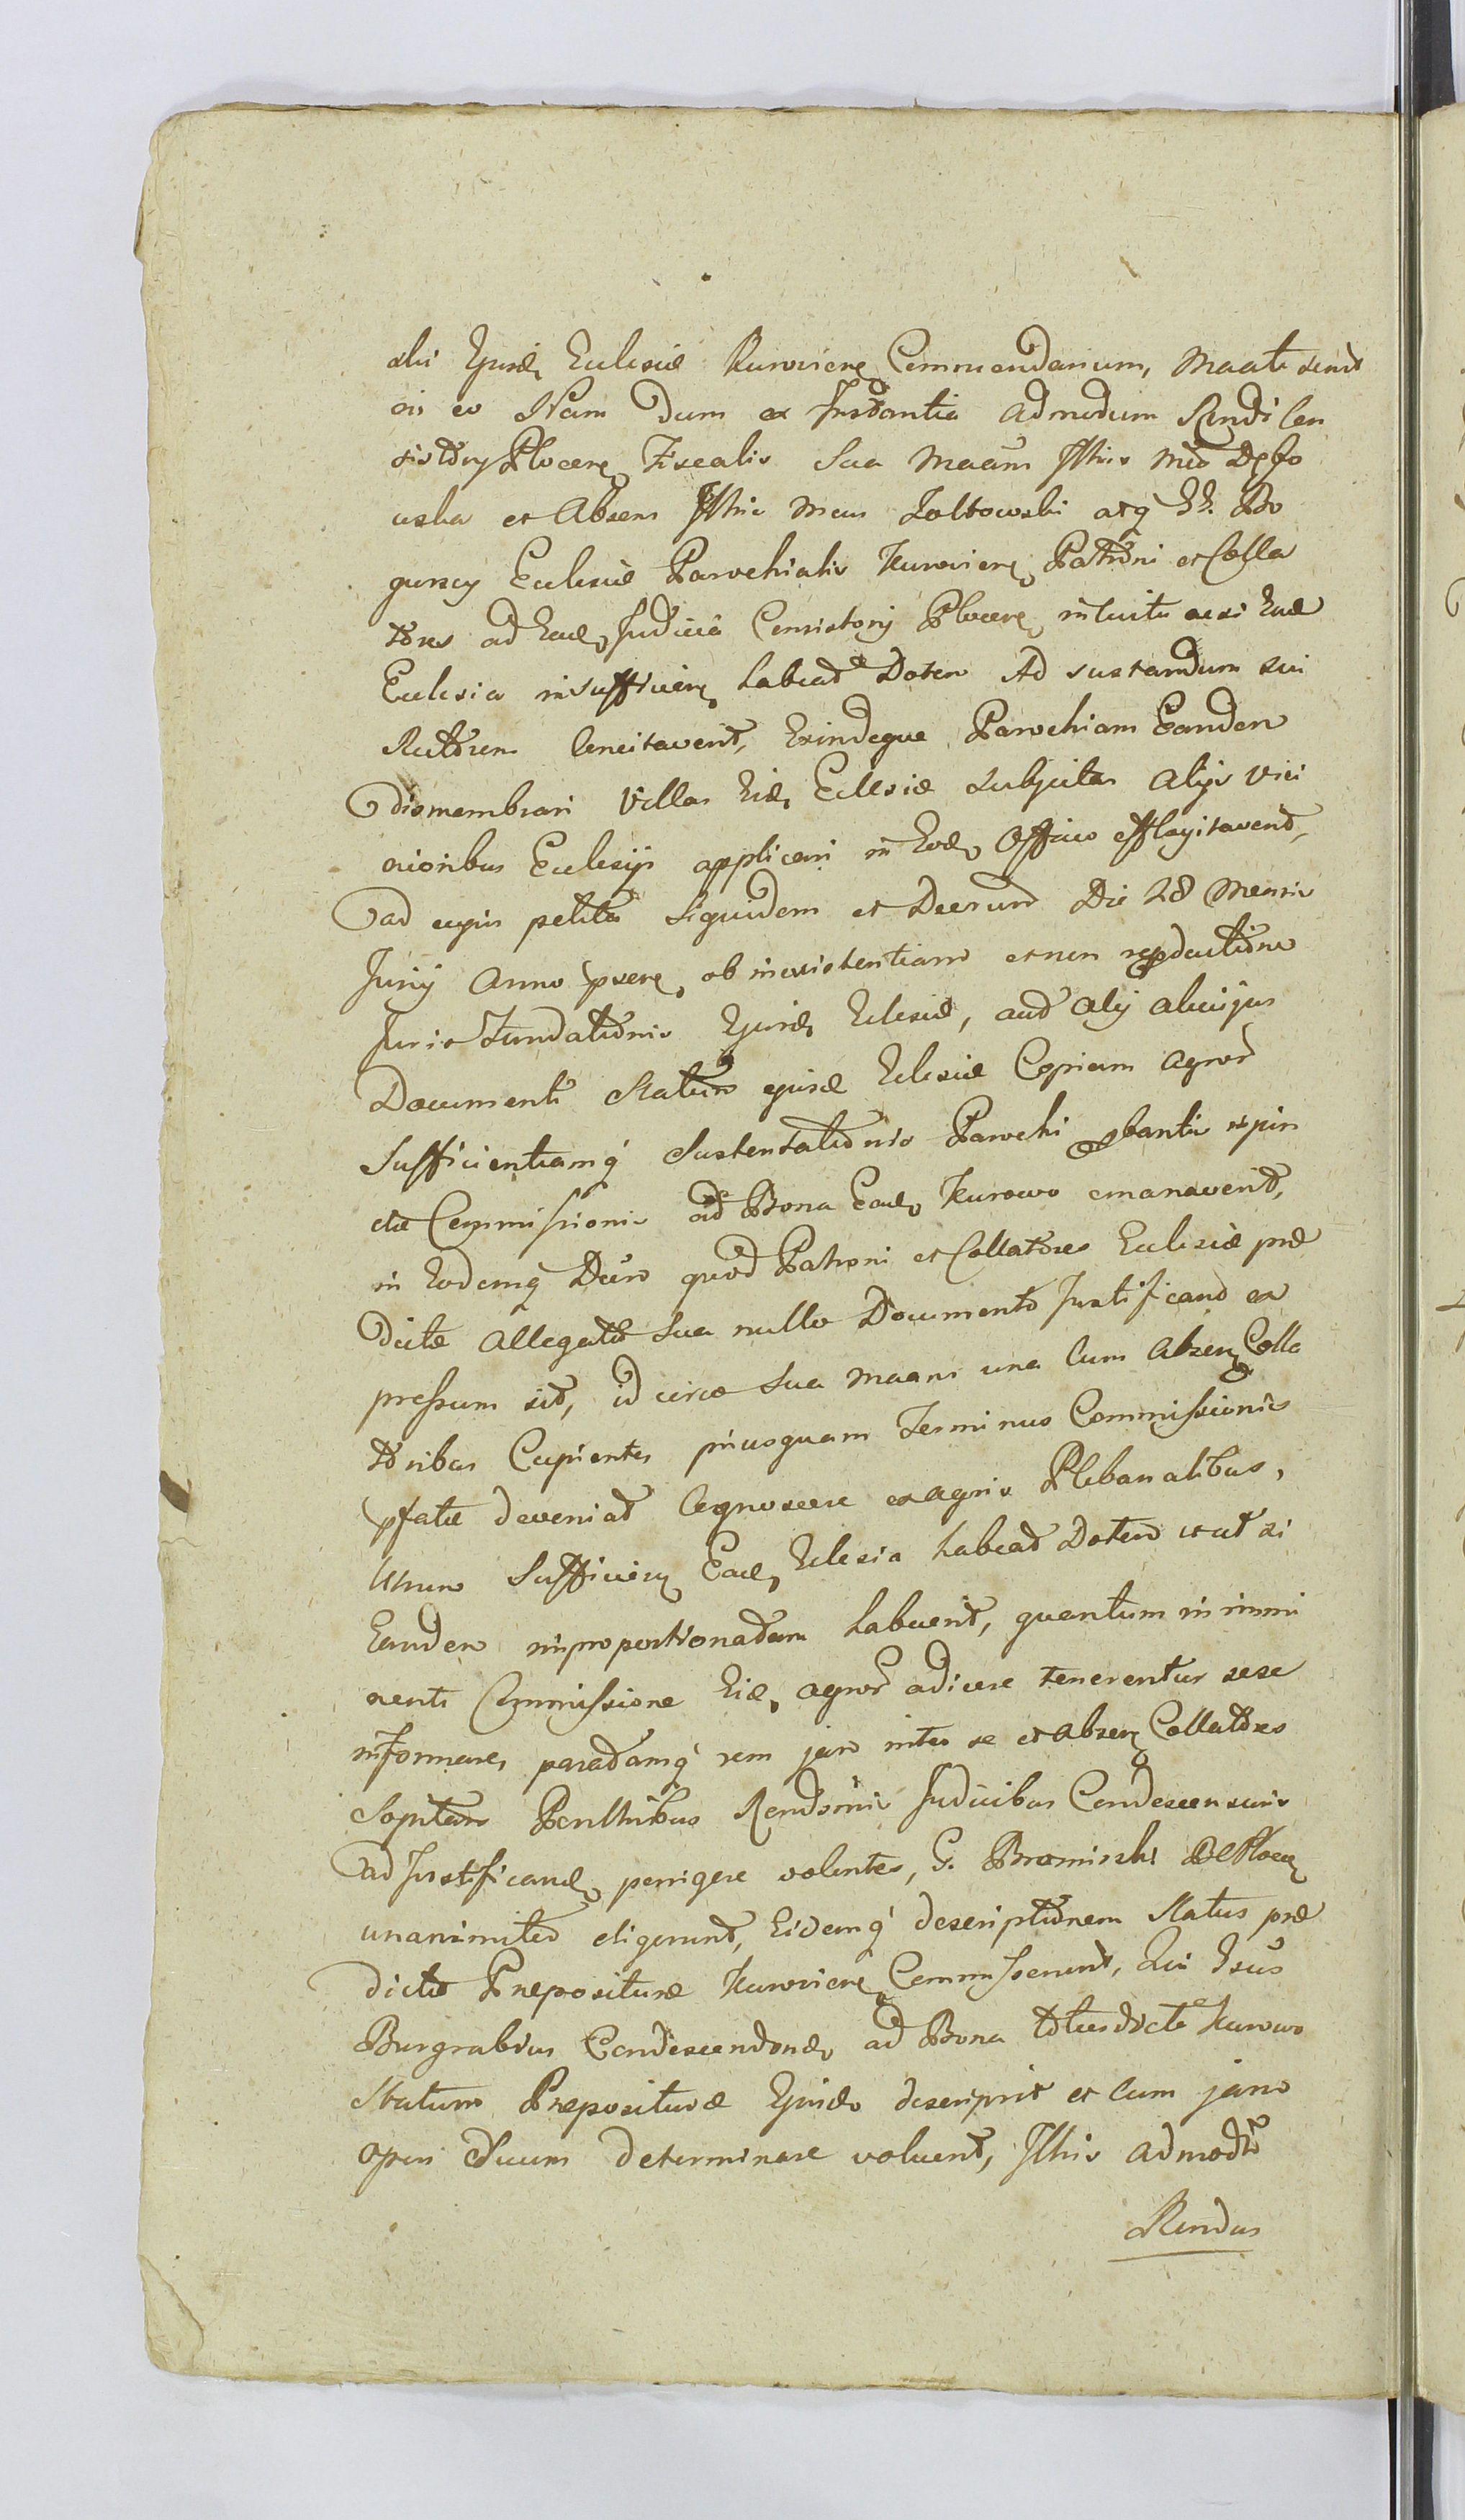 ski Ejusd Ecclesiæ Kuroviens Commendarium, Maate sunt
eis eo Nam Dum ex Instantia Admodum Rndi Con
sistory Plocens Fiscalis Sua Maans Illius
uska et Absens Illris Mcus Zoltowski atq GG. Bo
gurscy Ecclesiæ Parochialis Kuroviens Patroni et Colla
tores ad Ead Judicia Consistorij Plocens intuitu acsi Ead
Ecclesia insufficiens habeat Dotem Ad sustandum sui
Rectorem Concitaverit, Exindeque Parochiam Eandem
dismembrari Villas Eid Ecclesiæ Subjectas Alijs vici
nioribus Ecclesijs applicari in Eod Officio efflagitaverit,
ad cujus petita Siquidem et Decrum Die 28 Mensis
Junij Anno præs ob inexistentiam et non reproductione
Juris Fundationis Ejusd Eclesiæ, aut Alij alicujus
Documenti Statum ejusd Eclesiæ Copiam Agror
Sufficientiamq Sustentationis Parochi probantis respin
ctu Commissionis ad Bona Ead Kurowo emanaverit,
in Eodemq Decro quod Patroni et Collatores Ecclesiæ præ
dictæ Allegata sua nullo Documento Justificand ex
pressum sit, id circo Sua Maans una Cum Absens Colla
toribus Cupientes priusquam Terminus Commissionis
pfatæ deveniat Cognoscere ex agris Plebanalibus,
Utrum Sufficiens Ead Eclesia habeat Dotem et ut si
Eandem improportionatam habuerit, quantum in immi
nenti Commissione Eid, agror adicere tenerentur sese
informare, paratamq rem jam inter se et absens Collatores
Sopitam Perillribus Rendsmis Judicibus Condescensuris
ad Justificand porrigere volentes, G. Bromirski
unanimiter eligerunt, Eidemq descriptionem Status præ
dictæ Præpositura Kuroviens Commiserunt, Qui Isus
Burgrabius Condescendend ad Bona totiesdicta Kurowo
Statum Præposituræ Ejusd descripsit et Cum jam
opus Suum determinare voluerit, Illris Admodu
Rendus